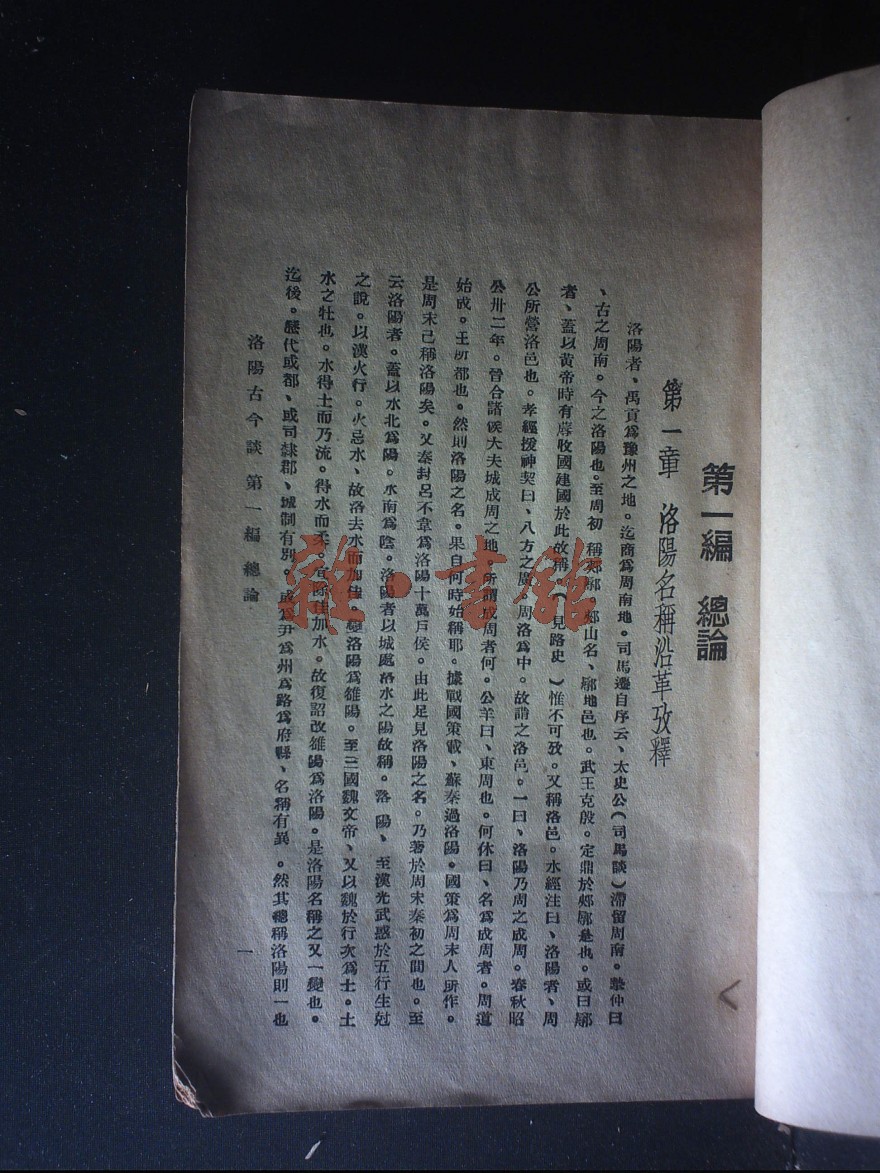 第一編 總論
第一章 洛陽名稱沿革攷釋
洛陽者、禹貢爲豫州之地。迄商爲周南地。司馬遷自序云、太史公(司馬談)滯留周南。摯仲曰
、古之周南。今之洛陽也。至周初 稱郟鄏 郟山名、鄏地邑也。武王克殷。定鼎於郟鄏是也。或曰鄏
者、蓋以黃帝時有蓐收國建國於此故稱。(見路史)惟不可攷。又稱洛邑。水經注曰、洛陽者、周
公所營洛邑也。孝經援神契曰、八方之廣、周洛爲中。故謂之洛邑。一曰、洛陽乃周之成周。春秋昭
公卅二年。晉合諸侯大夫城成周之地、所謂成周者何。公羊曰、東周也。何休曰、名爲成周者。周道
始成。王所都也。然則洛陽之名。果自何時始稱耶。據戰國策載、蘇秦過洛陽。國策爲周末人所作。
是周末已稱洛陽矣。又秦封呂不韋爲洛陽十萬戶侯。由此足見洛陽之名。乃著於周末秦初之間也。至
云洛陽者。蓋以水北爲陽。水南爲陰。洛陽者以城處洛水之陽故稱。洛 陽、至漢光武惑於五行生尅
之說。以漢火行。火忌水、故洛去水而加佳。變洛陽爲雒陽。至三國魏文帝、又以魏於行次爲土。土
水之牡也。水得土而乃流。得水而柔。宜除佳加水。故復詔改雒陽爲洛陽。是洛陽名稱之又一變也。
迄後。歷代或都、或司隸郡、城制有別。或爲尹爲州爲路爲府縣、名稱有異 。然其總稱洛陽則一也
洛陽古今談 第一編 總論
一
雜·書館